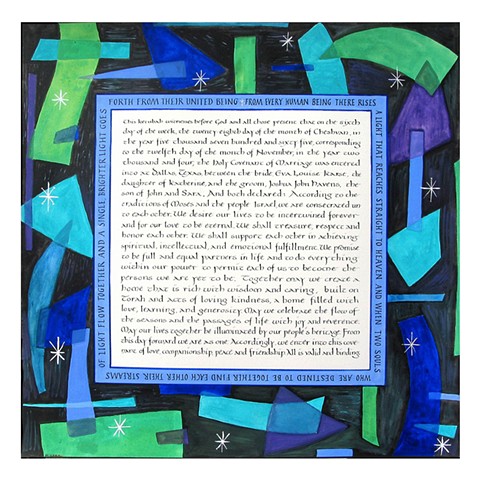 FORTH FROM THEIR UNITED BEING FROM EVERY HUMAN BEING THERE RISES
A LIGHT THAT REACHES STRAIGHT TO HEAVEN AND WHEN TWO SOULS
WHO ARE DESTINED TO BE TOGETHER FIND EACH OTHER THEIR STREAMS
OF LIGHT FLOW TOGETHER AND A SINGLE BRIGHTER LIGHT GOES
This ketubah witnesses before God and all those present that on the sixth
day of the week, the twenty eighth day of the month of Cheshvan, in
the year five thousand seven hundred and sixty five, corresponding
to the twelfth day of the month of November, in the year two
thousand and four, the Holy Covenant of Marriage was entered
into at Dallas, Texas, between the bride Eva Louise
daughter of Katherine, and the groom, Joshua John Havens, the
son of John and Sara, And both declared: According to the
traditions of Moses and the people Israel, we are consecrated un
to each other. We desire our lives to be intertwined forever
and for our love to be eternal. We shall treasure, respect and
honor each other. We shall support each other in achieving
spiritual, intellectual, and emotional fulfillment. We promise
to be full and equal partners in life and to do everything
within our power to permit each of us to become the
persons we are yet to be. Together may we create a
home that is rich with wisdom and caring, built on
Torah and acts of loving kindness, a home filled with
love, learning, and generosity. May we celebrate the flow of
the seasons and the passages of life with joy and reverence.
May our lives together be illuminated by our people's heritage. From
this day forward we are as one. Accordingly, we enter into this cove
nant of love, companionship, peace and friendship. All is valid and binding.